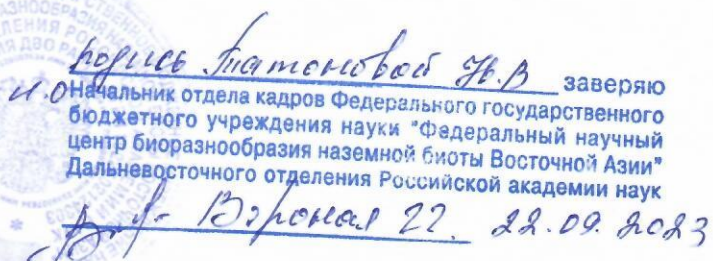 подпись Татоновой Ю.В заверяю
и.о Начальник отдела кадров Федерального государственного
бюджетного учреждения науки "Федеральный научный
центр биоразнообразия наземной биоты Восточной Азии"
Дальневосточного отделения Российской академии наук
22.09.2023